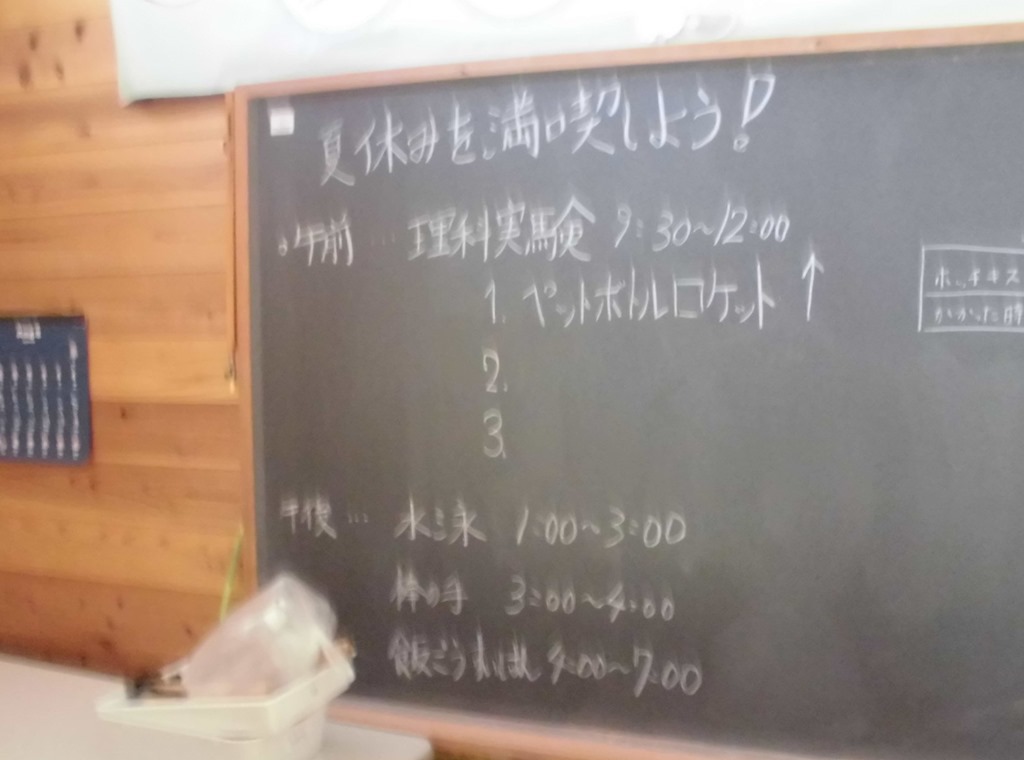 夏休みを満喫しよう!
。午前 … 理科実験 9:30~12:00
1. ペットボトルロケット ↑
2.
3.
午後 … 水泳 1:00~3:00
棒の手 3:00~4:00
飯ごうすいはん 4:00~7:00
ホッチキス
かかった時